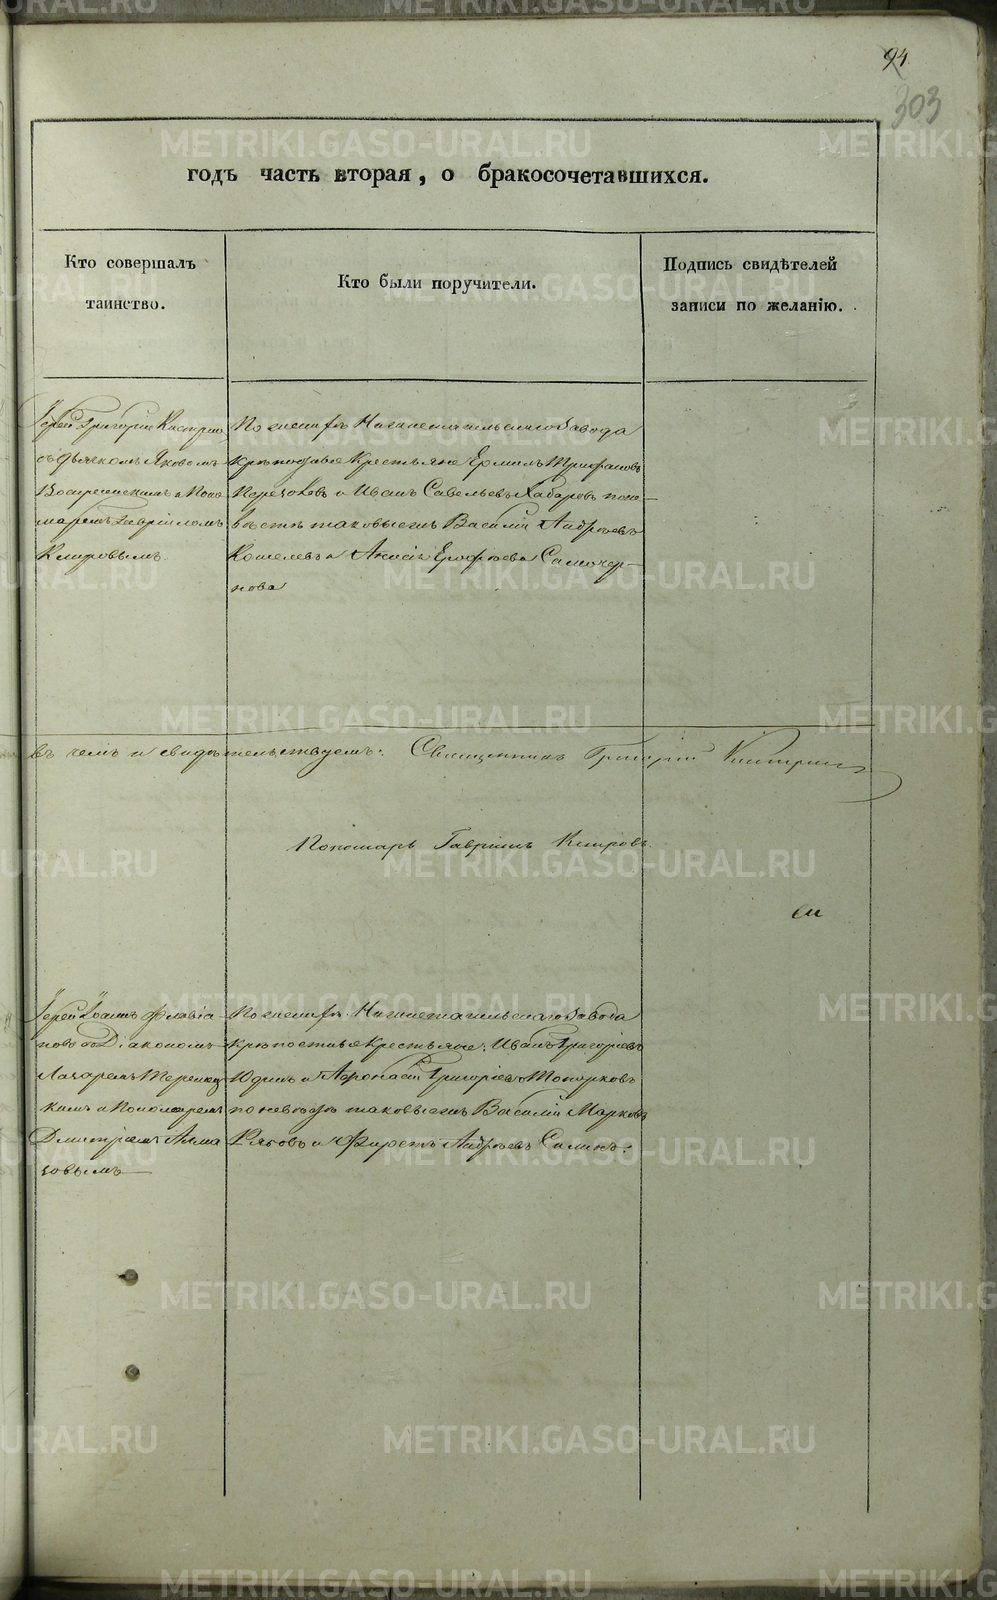 94
303
годъ часть вторая, о бракосочетавшихся.
Кто совершалъ
таинство.
Кто были поручители.
Подпись свидѣтелей
записи по желанію.
Іерей Григорій
съ дьячкомъ Яковомъ
Воскресенскимъ и Поно
маремъ Гавріиломъ
Кипровымъ
По женихѣ Нижнетагильскаго Завода
крѣпостные Крестьяне Ермилъ Трифановъ
и Иванъ Савельевъ Хабаровъ поне-
вѣстѣ таковыежъ Василій Андрѣевъ
Кошелевъ и Ерофѣевъ Самочер-
нова
въ чемъ и свидѣтельствуемъ: Священникъ Григорій
Пономарь Гавріилъ Кипровъ
Іерей Іоаннъ Флавіа
новъ со Діакономъ
Лазаремъ
кимъ и Пономаремъ
Дмитріемъ Алма
зовымъ
По женихѣ Нижнетагильскаго Завода
крѣпостные Крестьяне: Иванъ Григорьевъ
Юдинъ и Афонасій Григорьевъ Топорковъ
по невѣстѣ таковыежъ Василій Марковъ
и Фирсъ Андрѣевъ
METRIKI.GASO-URAL.RU